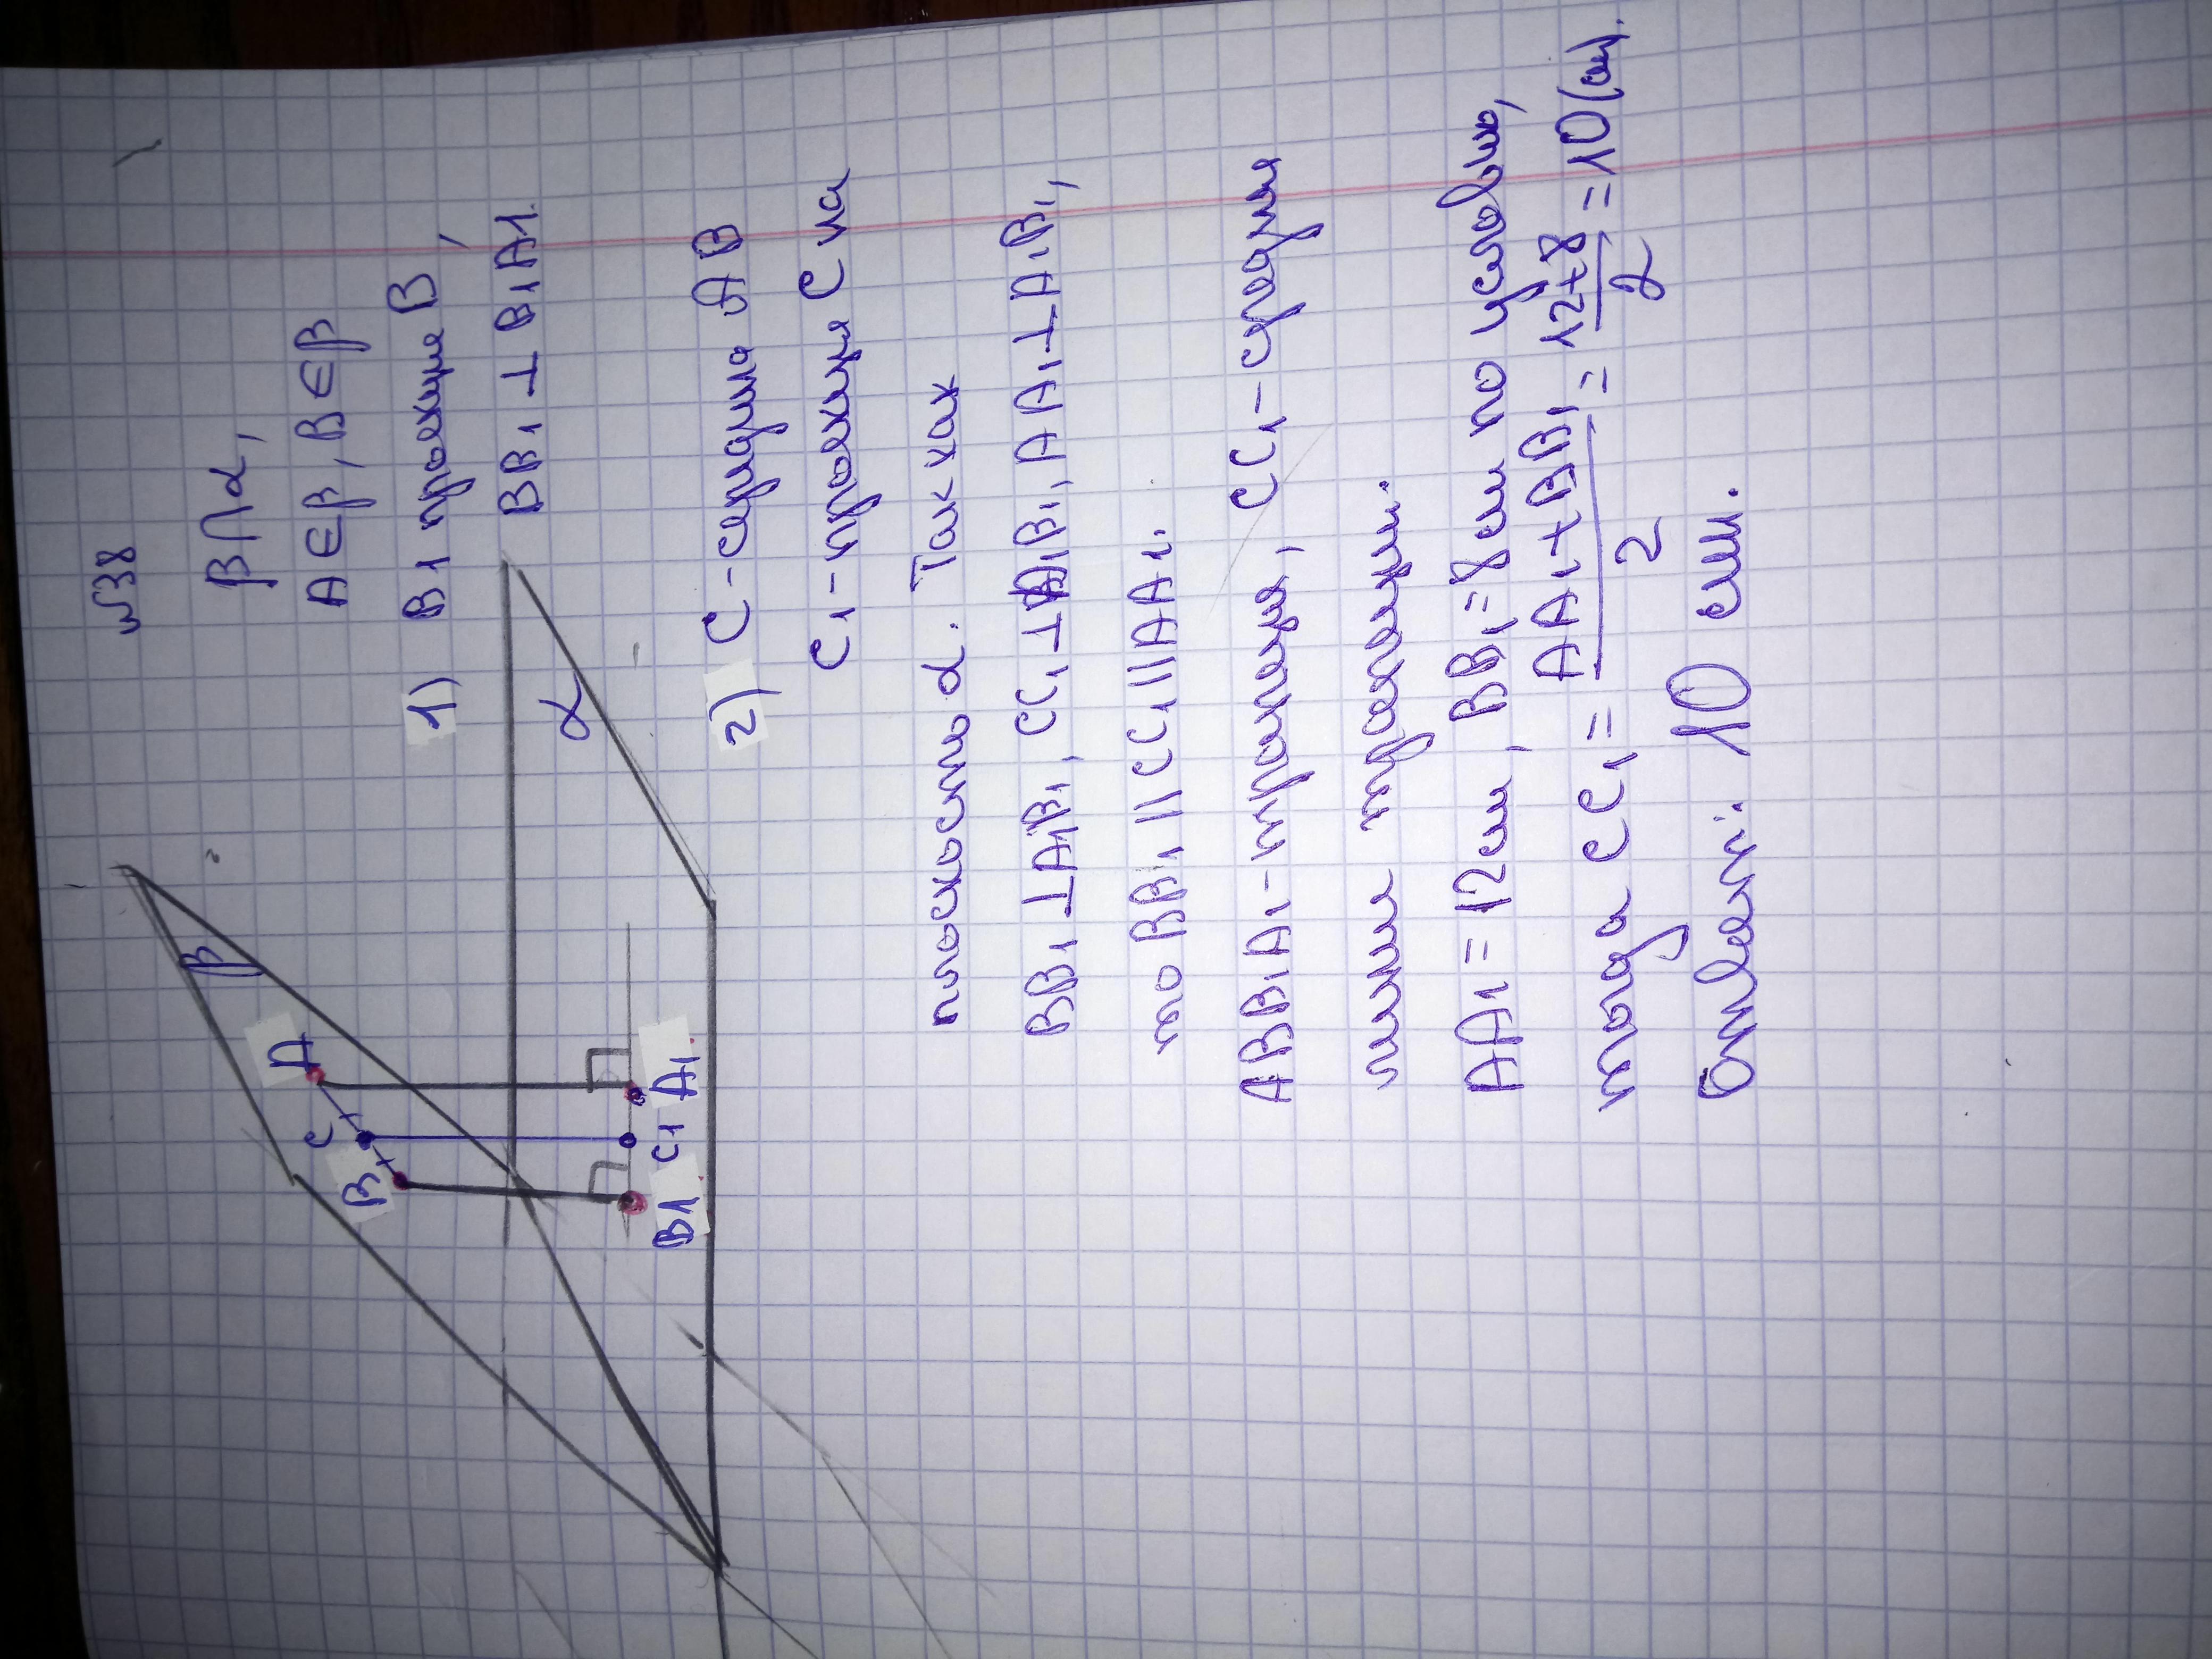 №38
β∩α,
A∈β, B∈β
1) B1 проекция B,
BB1 ⊥ B1A1.
β
A
C
B
α
B1 C1 A1
2) C - середина AB
C1 - проекция C на
плоскость α. Так как
BB1 ⊥ A1B1, CC1 ⊥ A1B1, AA1 ⊥ A1B1,
то BB1 || CC1 || AA1.
ABB1A1 - трапеция, CC1 - средняя
линия трапеции.
AA1 = 12 см, BB1 = 8 см по условию,
тогда CC1 = (AA1 + BB1)/2 = (12+8)/2 = 10 (см).
Ответ: 10 см.